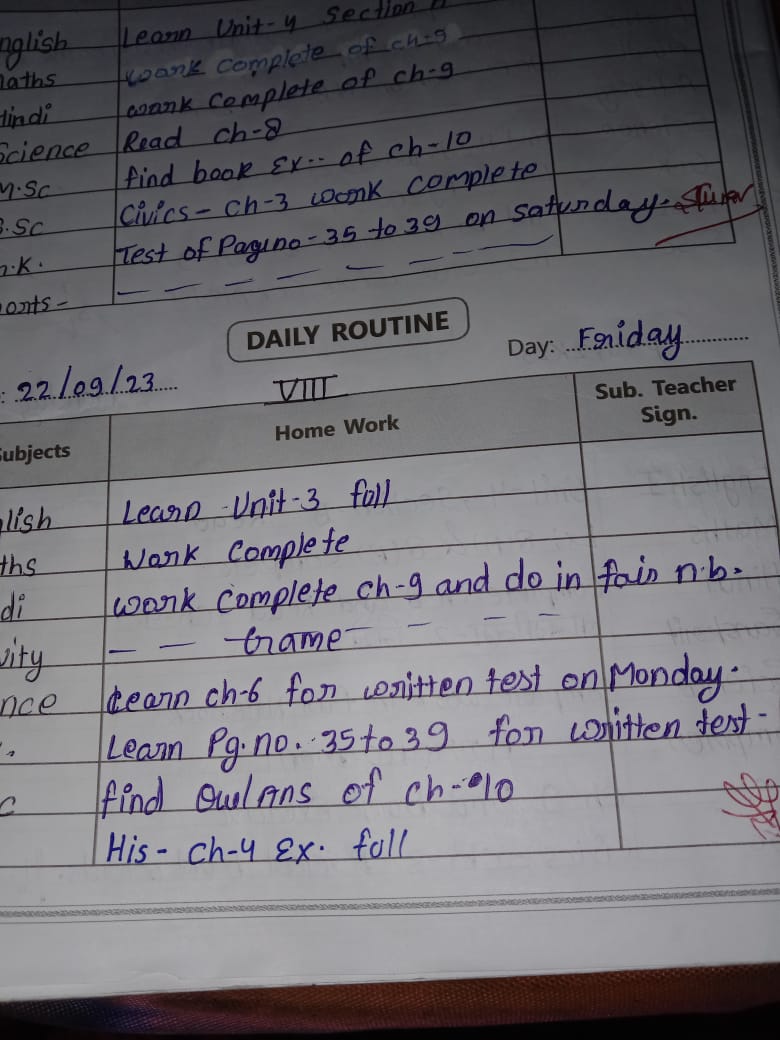 nglish Learn Unit-4 Section
aths work complete of ch-9
Hindi work complete of ch-9
Science Read ch-8
M.Sc find book Ex-- of ch-10
S.Sc Civics - ch-3 work complete
n.K. Test of Pag.no-35 to 39 on saturday.
onts- — — — — — — —
DAILY ROUTINE
: 22/09/23 Day: Friday
VIII
Subjects Home Work Sub. Teacher
Sign.
lish Learn Unit-3 full
ths Work complete
di work complete ch-9 and do in fair n.b.
vity — — Game — — — —
nce Learn ch-6 for written test on Monday.
. Learn Pg.no. 35 to 39 for written test-
c find Ans of ch-10
His- ch-4 Ex. full